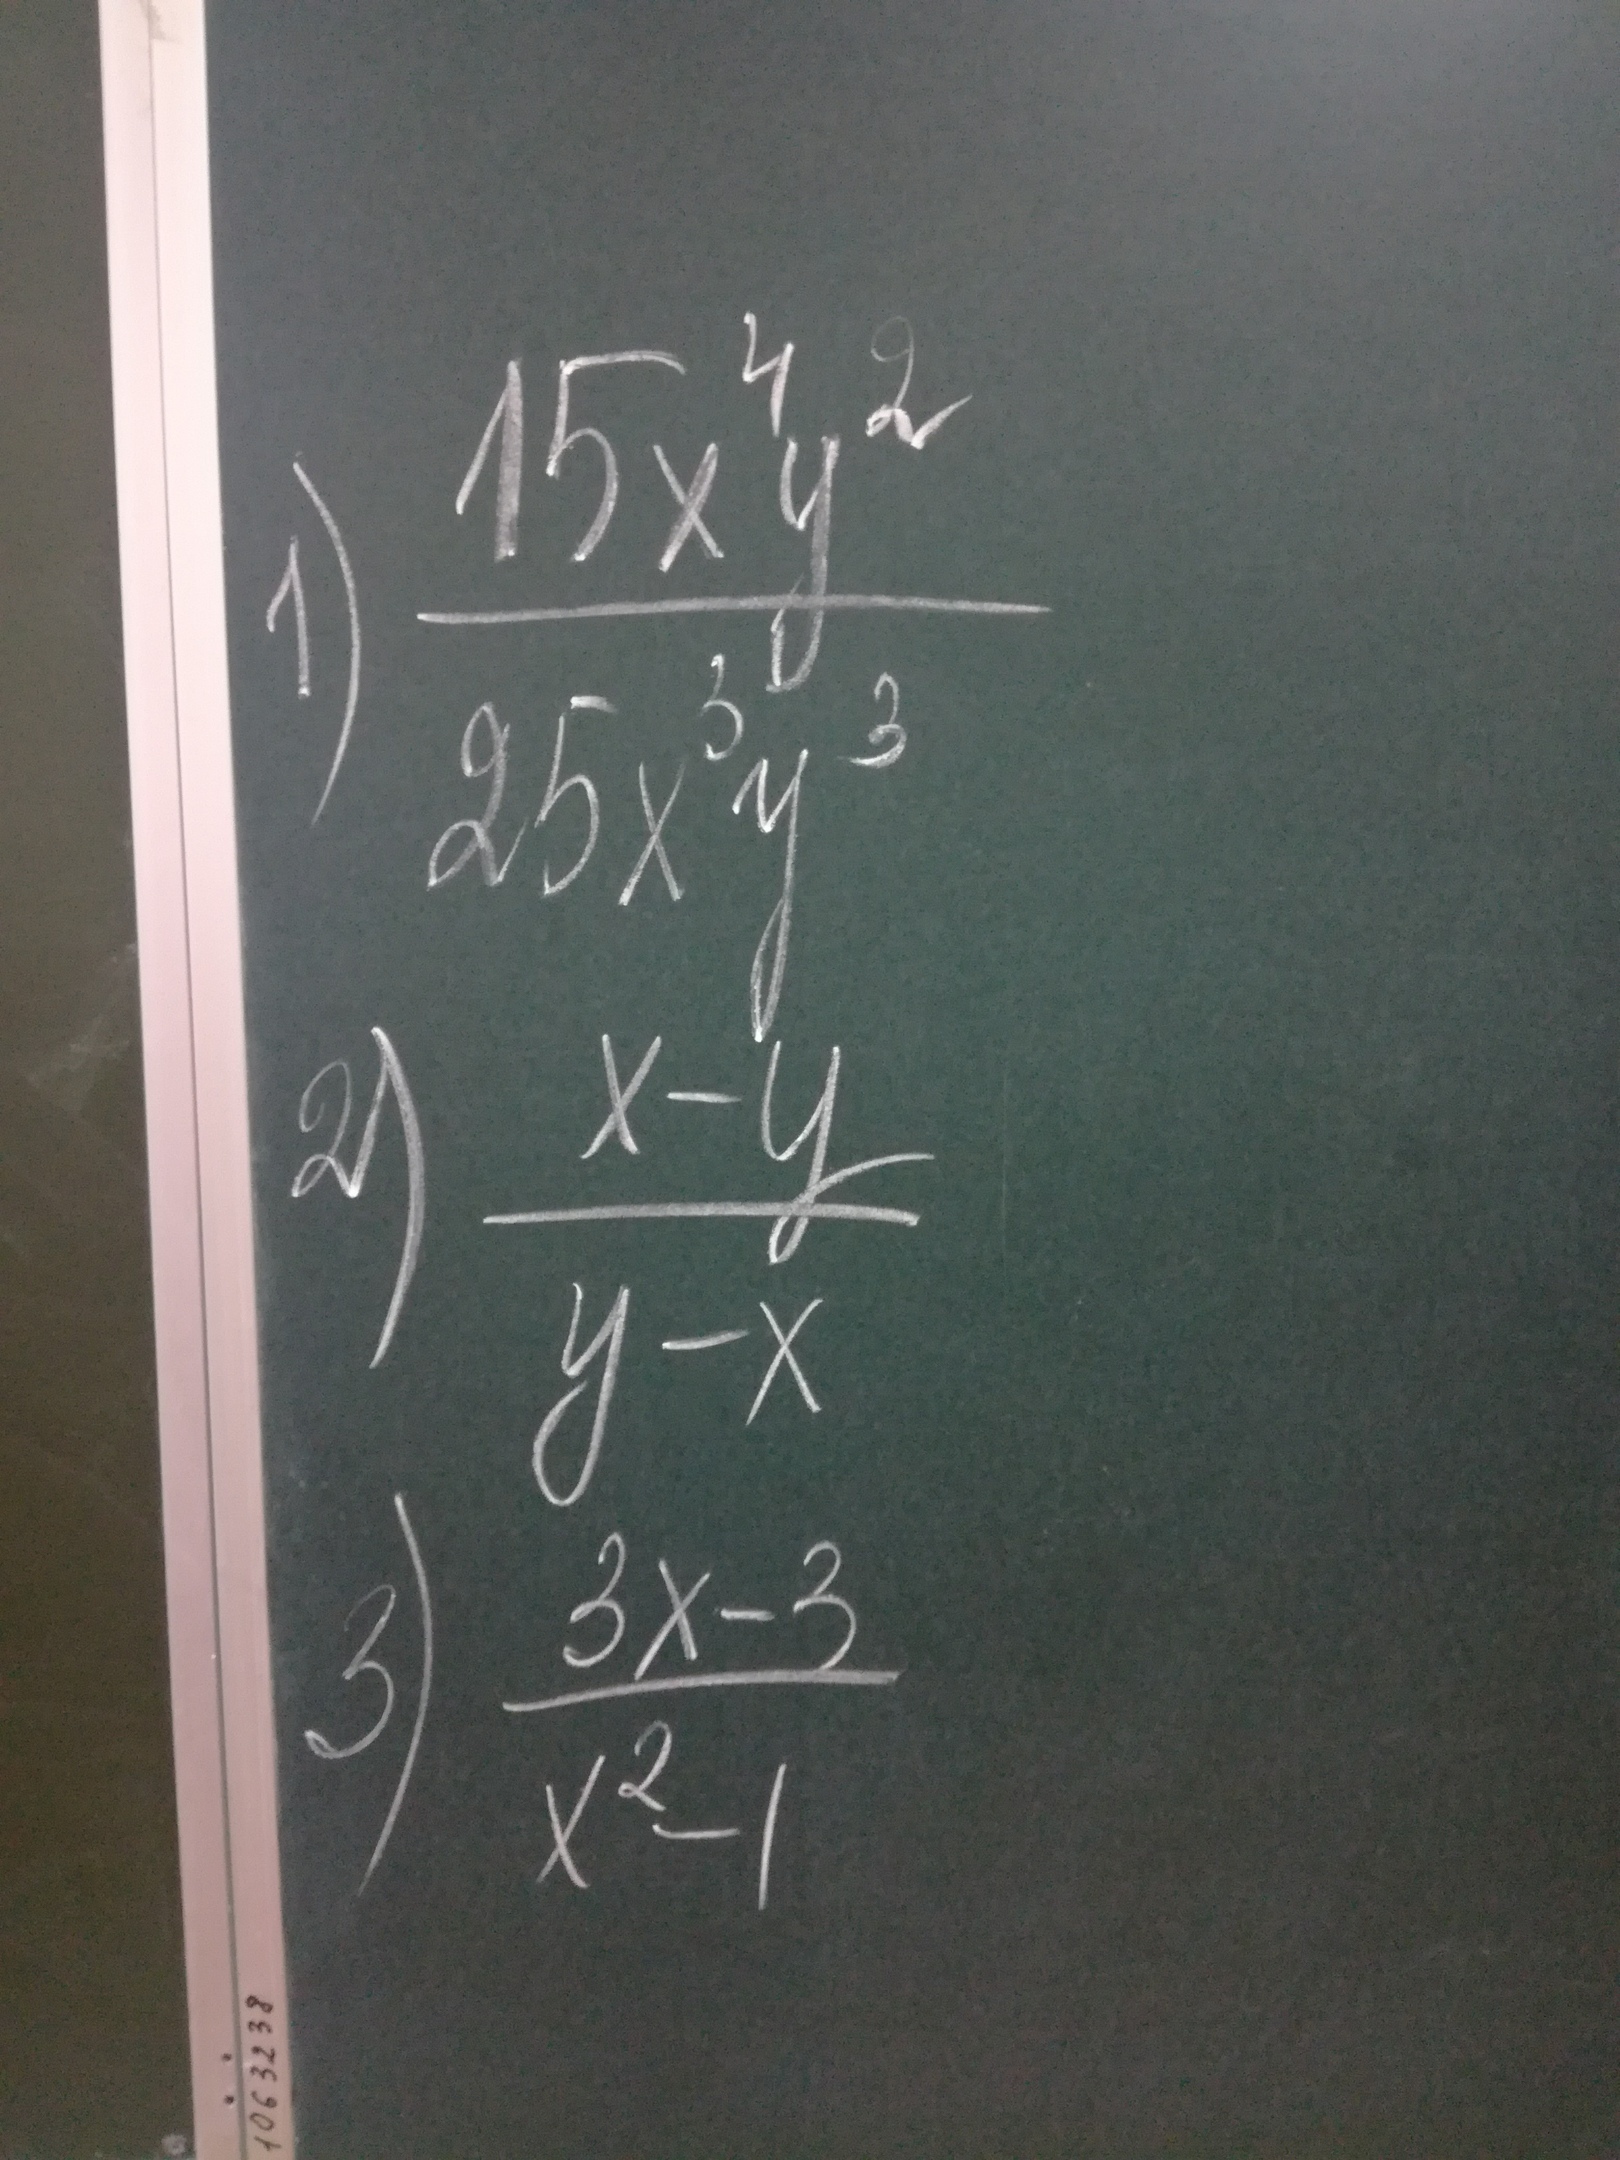 1) 15x⁴y²
25x³y³
2) x-y
y-x
3) 3x-3
x²-1
1063238